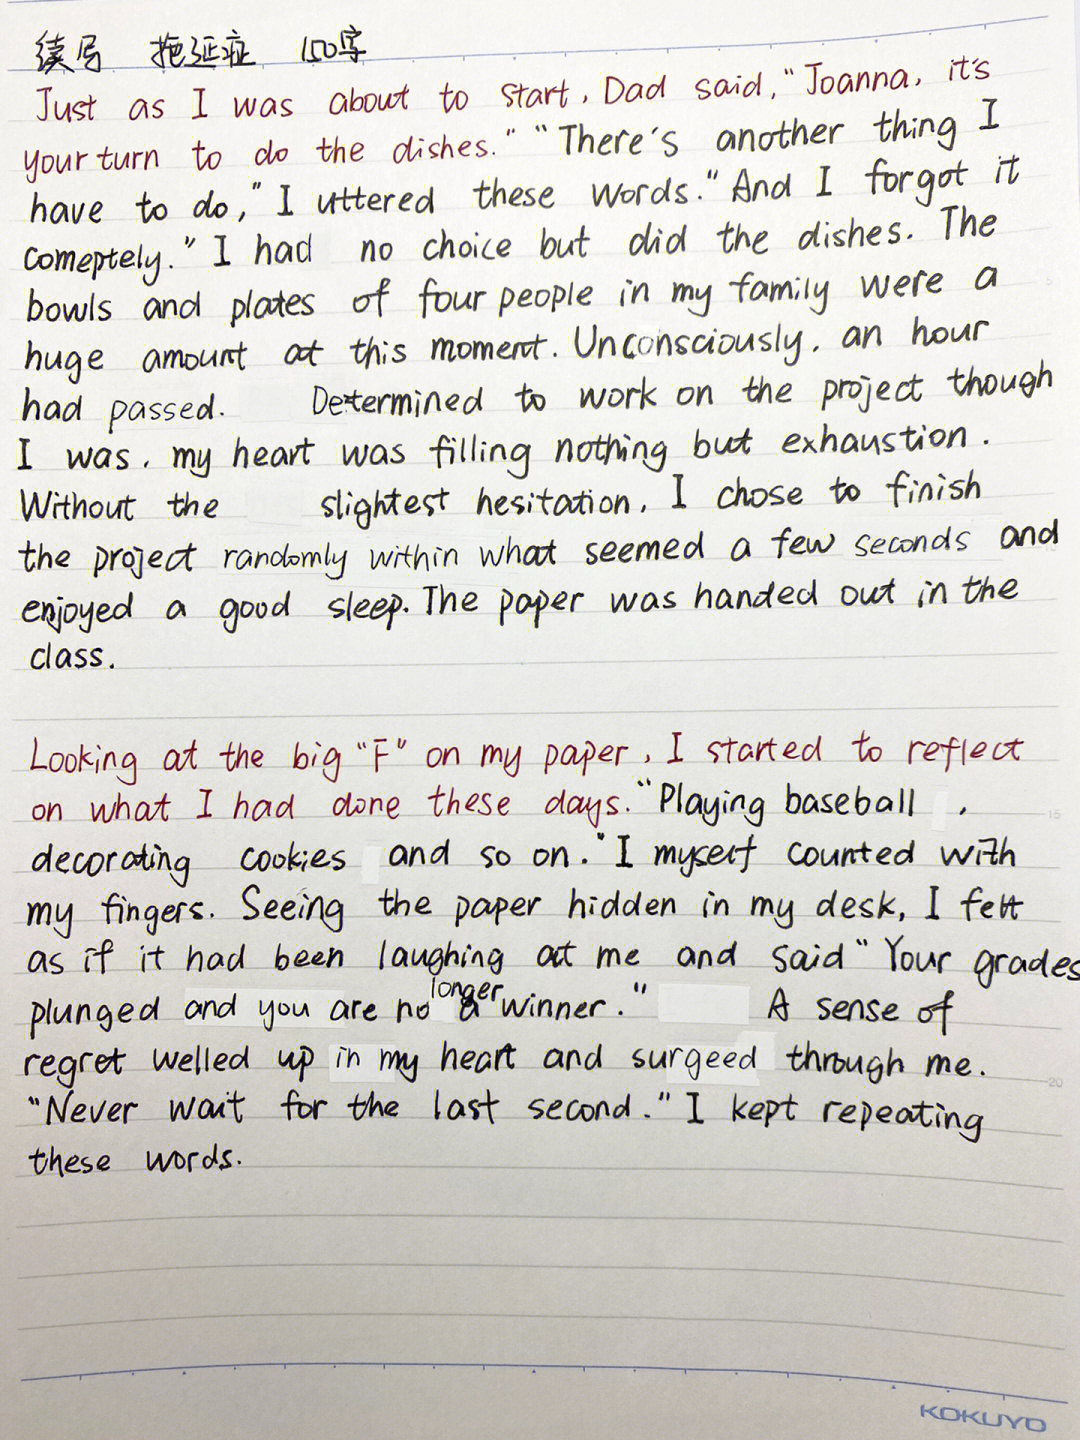 续写 拖延症 150字
Just as I was about to start, Dad said, "Joanna, it's
your turn to do the dishes." "There's another thing I
have to do," I uttered these words. "And I forgot it
comeptely." I had no choice but did the dishes. The
bowls and plates of four people in my family were a
huge amount at this moment. Unconsciously, an hour
had passed. Determined to work on the project though
I was, my heart was filling nothing but exhaustion.
Without the slightest hesitation, I chose to finish
the project randomly within what seemed a few seconds and
enjoyed a good sleep. The paper was handed out in the
class.
Looking at the big "F" on my paper, I started to reflect
on what I had done these days. "Playing baseball,
decorating cookies and so on." I myself counted with
my fingers. Seeing the paper hidden in my desk, I felt
as if it had been laughing at me and said "Your grades
plunged and you are no longer a winner." A sense of
regret welled up in my heart and surgeed through me.
"Never wait for the last second." I kept repeating
these words.
15
20
KOKUYO